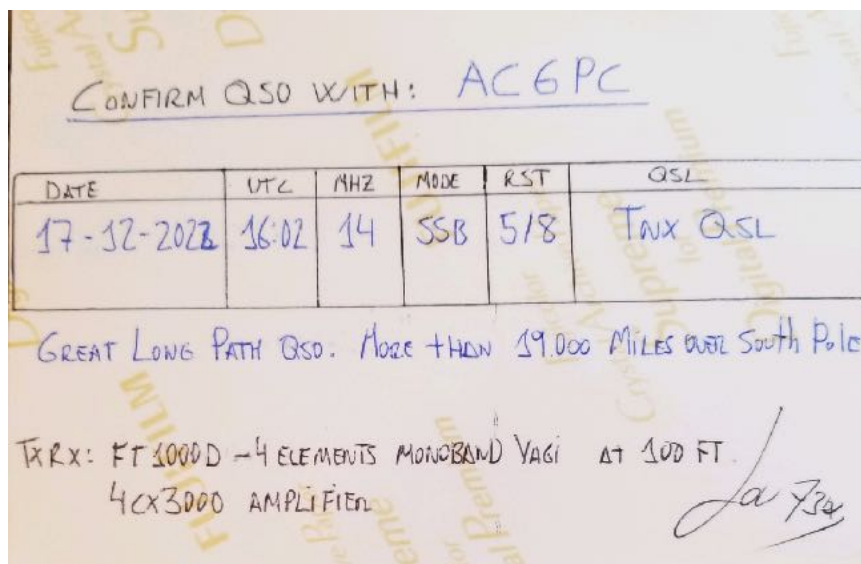 CONFIRM QSO WITH: AC6PC
DATE UTC MHZ MODE RST QSL
17-12-2022 16:02 14 SSB 5/8 TNX QSL
GREAT LONG PATH QSO. MORE THAN 19.000 MILES OVER SOUTH POLE
TXRX: FT1000D - 4 ELEMENTS MONOBAND YAGI AT 100 FT.
4CX3000 AMPLIFIER
73